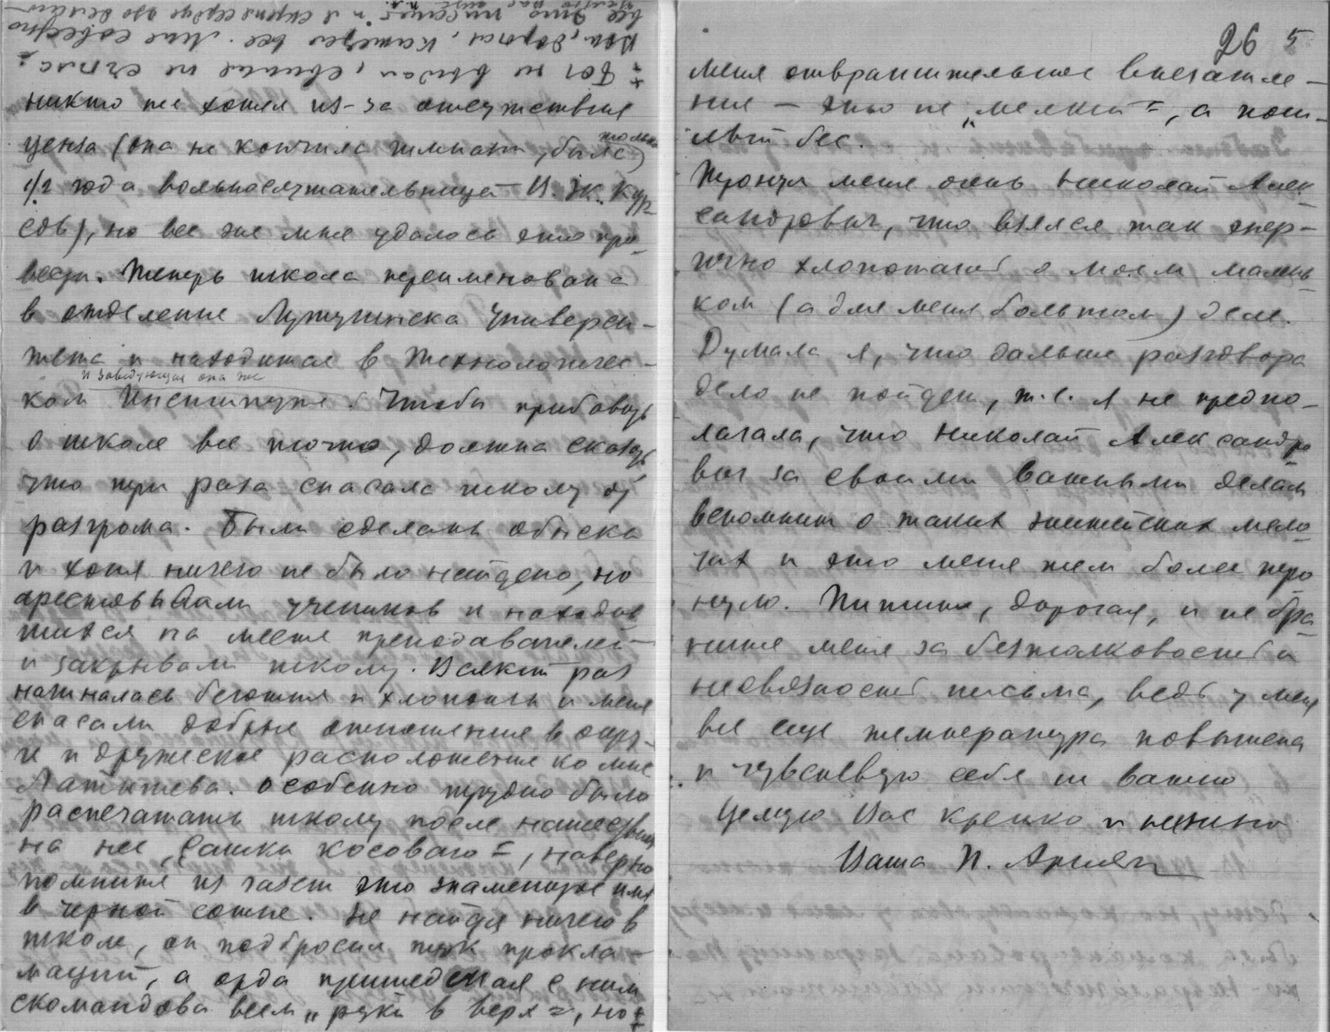 никто не хотел из-за отсутствия
ценза (она не кончила гимназии, была только
1½ года вольнослушательницей В. Ж. Кур-
сов), но все же мне удалось это про-
вести. Теперь школа переименована
в отделение Лутугинска Универси-
тета и находится в Технологичес-
ком Институте
и заведующая она же
. Чтобы прибавить
о школе все точно, должна сказать
что три раза спасала школу от
разгрома. Были сделаны обыски
и хотя ничего не было найдено, но
арестовывали учеников и находив
шихся на месте преподавателей
и закрывали школу. Всякий раз
начиналась беготня и хлопоты и меня
спасали добрые отношения в окру-
ге и дружеское расположение ко мне
Латышева. Особенно трудно было
распечатать школу после нашествия
на нее „Сашки Косого“, наверно
помните из газет это знаменитое имя
в черной сотне. Не найдя ничего в
школе, он подбросил пук прокла-
маций, а орда пришедшая с ним
скомандовав всем „руки в верх“, но +
+ Бог не выдал, свинья не съела.
Вам, дорогая, кажется все. Мне совестно
все это писать и я скрепя сердце это делаю
26 5
меня отвратительное впечатле-
ние — это не „мелкий“, а пош-
лый бес.
Тронул меня очень Николай Алек
сандрович, что взялся так энер-
гично хлопотать о моем малень
ком (а для меня большом) деле.
Думала я, что дальше разговора
дело не пойдет, т. е. я не предпо-
лагала, что Николай Александро
вич за своими важными делами
вспомнит о таких житейских мело
чах и это меня тем более тро
нуло. Пишите, дорогая, и не бра
ните меня за безтолковость и
несвязность письма, ведь у меня
все еще температура повышена
и чувствую себя не важно
Целую Вас крепко и нежно
Ваша П.